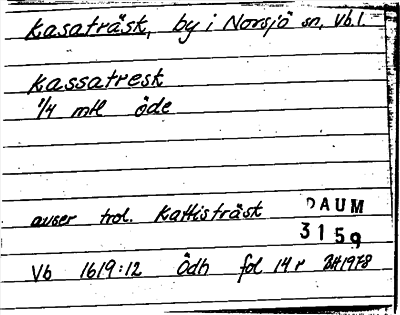 Kasaträsk, by i Norsjö sn, Vb.l.
Kassatresk
1/4 mtl öde
avser trol. Kattisträsk
DAUM
3159
Vb 1619:12 Ödh fol 14 r BH1978